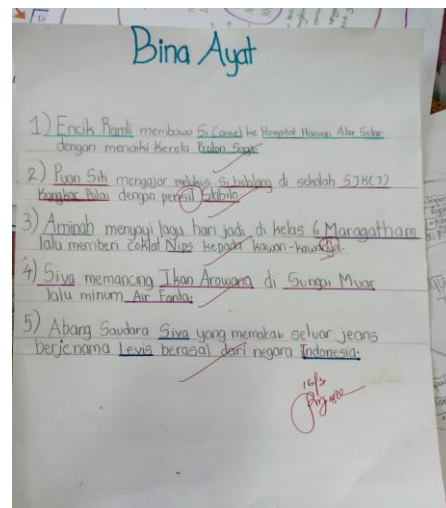 Bina Ayat
1) Encik Ramli membawa Si Comel ke Hospital Haiwan Alor Setar
dengan menaiki kereta Proton Saga.
2) Puan Siti mengajar melukis si belalang di sekolah SJK(T)
Kangkar Pulai dengan pensil Stabilo.
3) Aminah menyayi lagu hari jadi di kelas 6 Maragatham
lalu memberi coklat Nips kepada kawan-kawan
4) Siva memancing Ikan Arowana di Sungai Muar
lalu minum Air Fanta.
5) Abang Saudara Siva yang memakai seluar jeans
berjenama Levis berasal dari negara Indonesia.
16/2